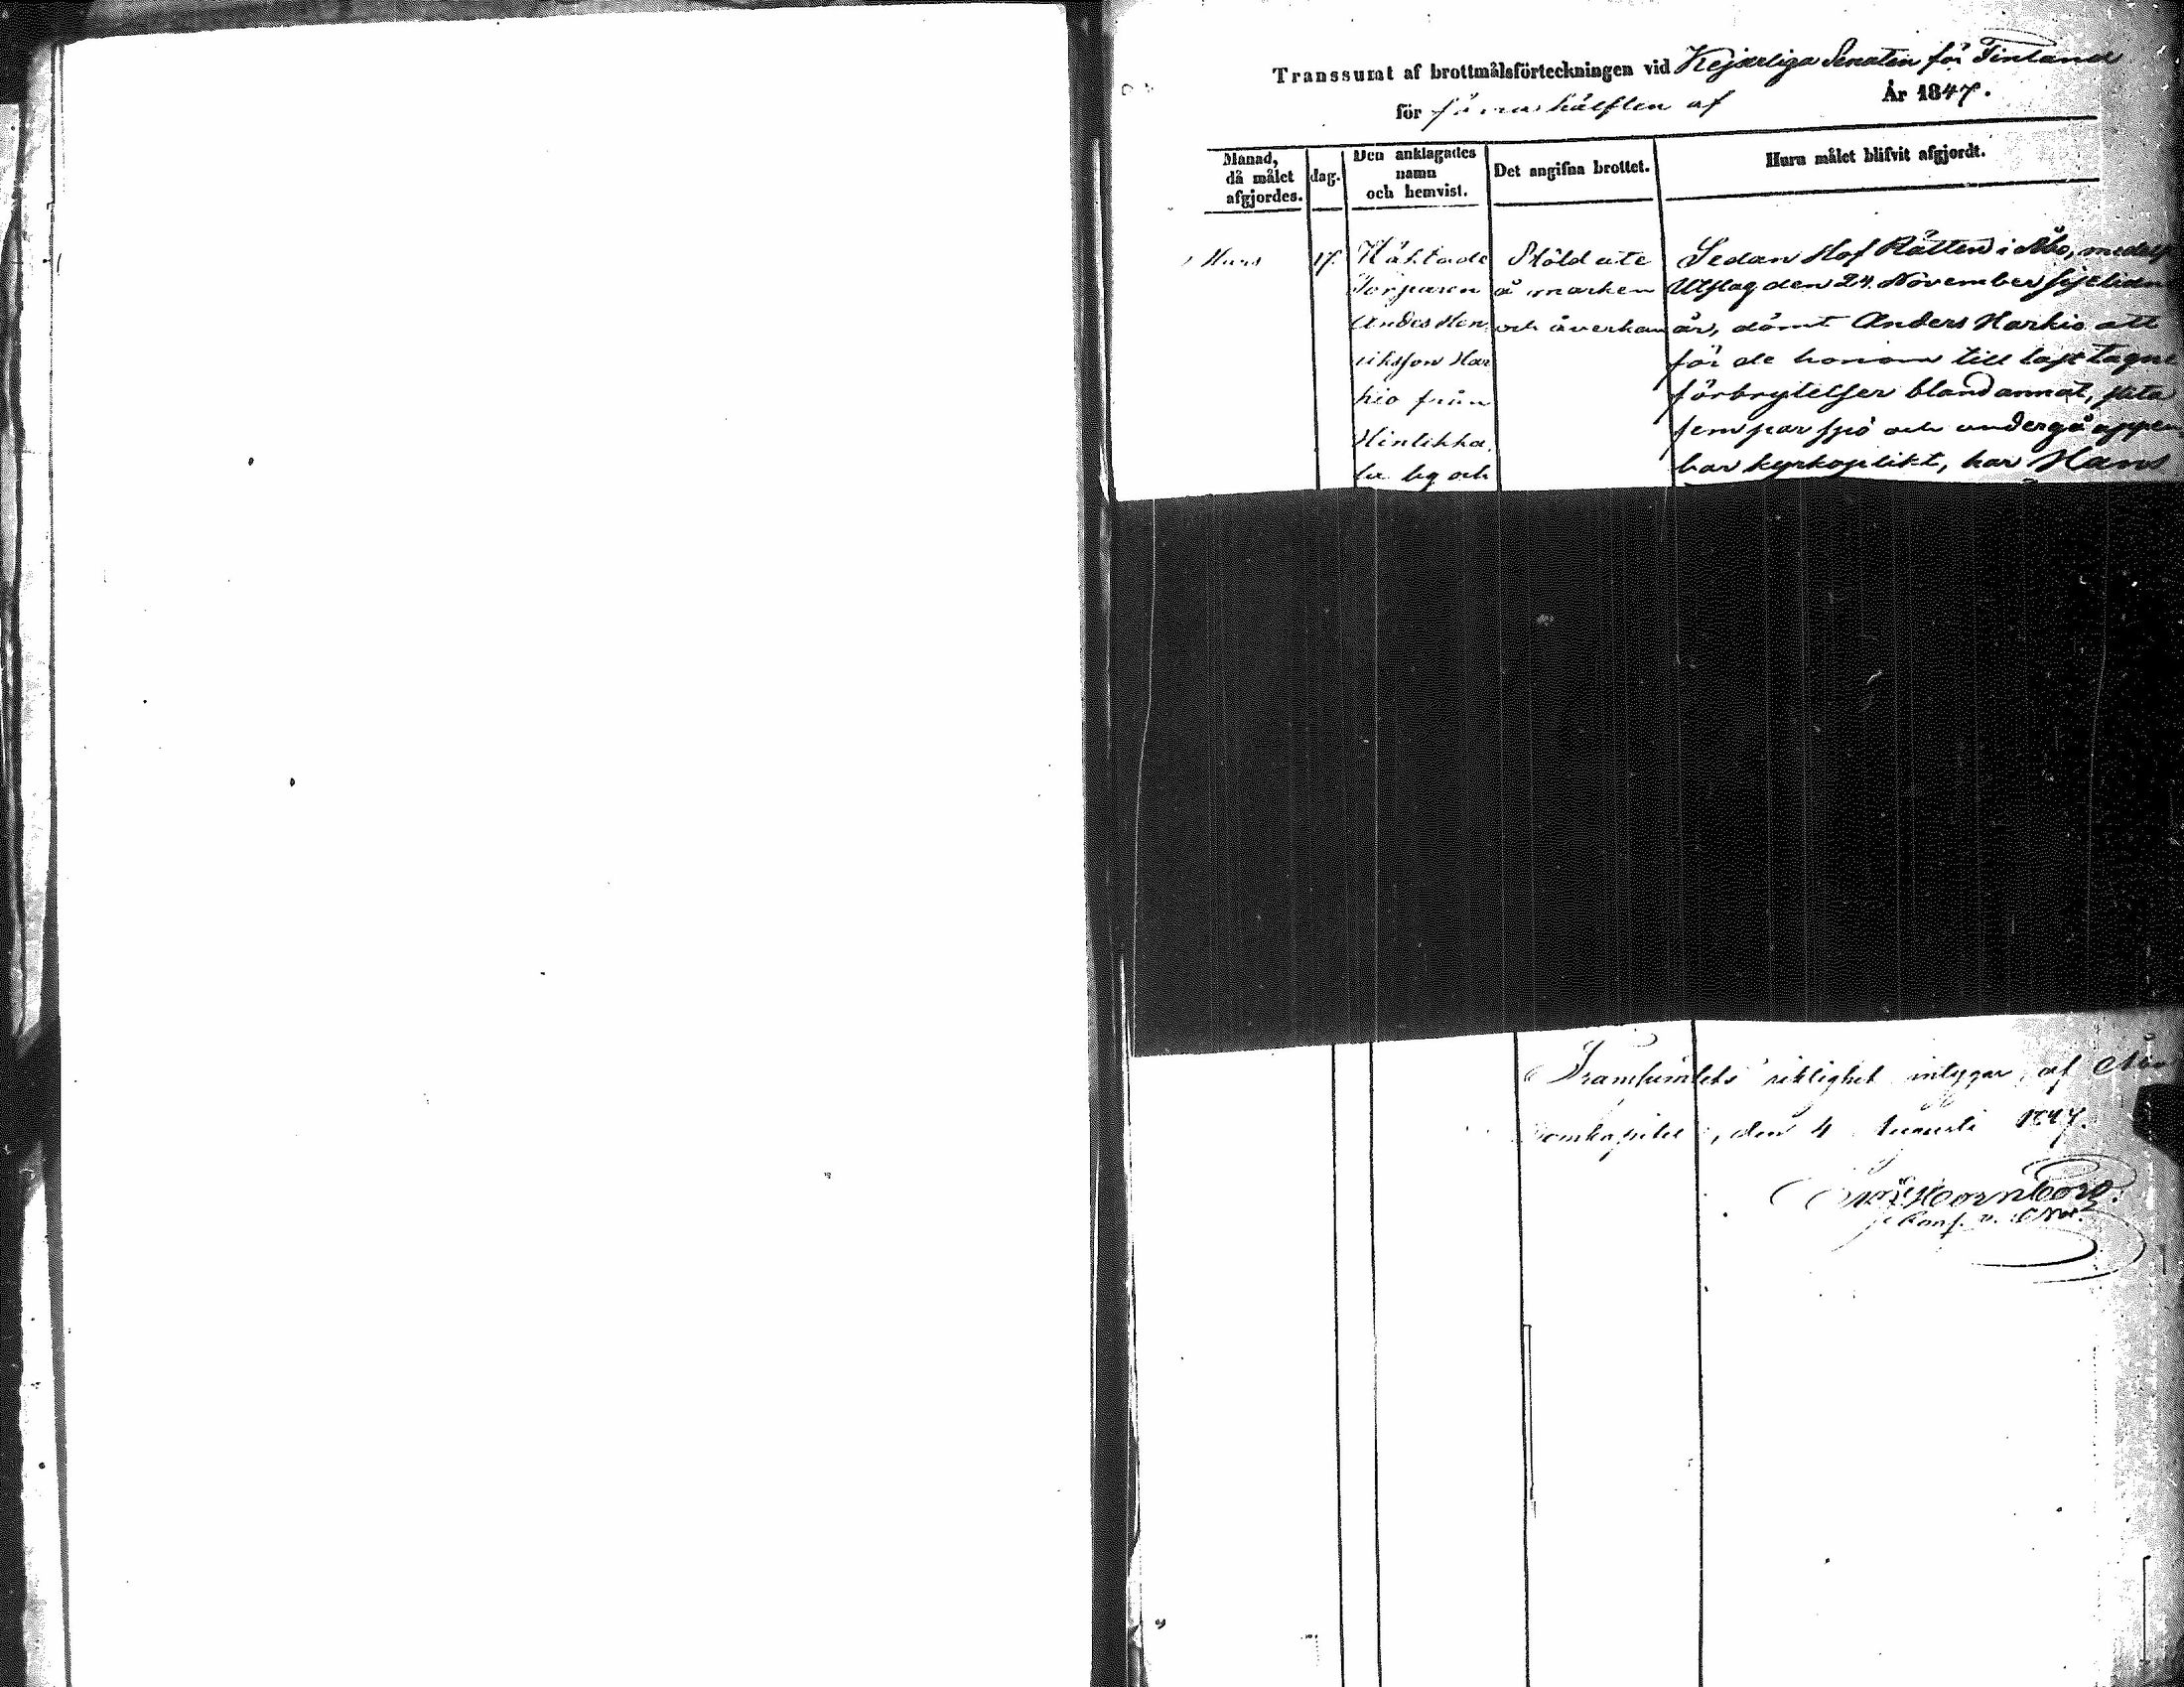 Transsumt af brottmålsförteckningen vid Kejserliga Senaten för Finland
för förra hälften af År 1847.
Månad, då målet afgjordes.
dag.
Den anklagades namn och hemvist.
Det angifna brottet.
Huru målet blifvit afgjordt.
Mars
17.
Häktade
Torparen
Anders Hen
riksson Har
kio från
Hintikka
la by och
Stöld ute
å marken
och åverkan
Sedan Hof Rätten i Åbo, medelst
Utslag den 24. November sistlidne
år, dömt Anders Harkio att
för de honom till last tagne
förbrytelser bland annat, slita
fem par spö och undergå uppen
bar kyrkoplikt, har Hans
Transsumtets riktighet intygar, af
Domkapitlet, den 4 Augusti 1847.
Hornborg.